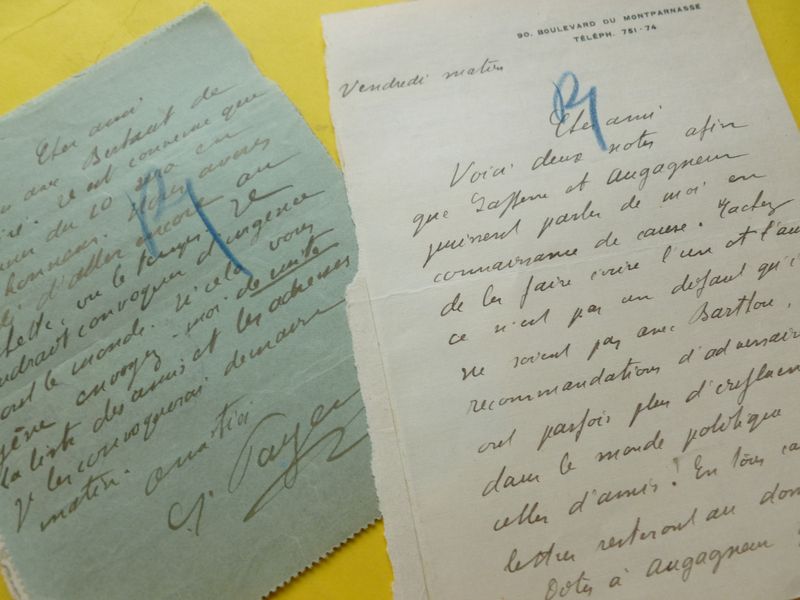 Cher ami
avec Bertrand de
est convenu que
du 20 sera en
honneur. Nous avons
d'aller encore au
vu le temps. Je
convoquer d'urgence
tout le monde. Si cela vous
gêne envoyez-moi de suite
la liste des amis et les adresses
Je les convoquerai demain
matin. Amitiés
G. Payen
90, BOULEVARD DU MONTPARNASSE
TÉLÉPH. 751-74
Vendredi matin
Cher ami
Voici deux notes afin
que et Augagneur
puissent parler de moi en
connaissance de cause. Tachez
de les faire écrire l'un et l'au
ce n'est pas un défaut qu'i
ne soient pas avec Barthou,
recommandations d'adversaire
ont parfois plus d'influence
dans le monde politique
celles d'amis! En tous ca
lettres resteront au do
Dites à Augagneur